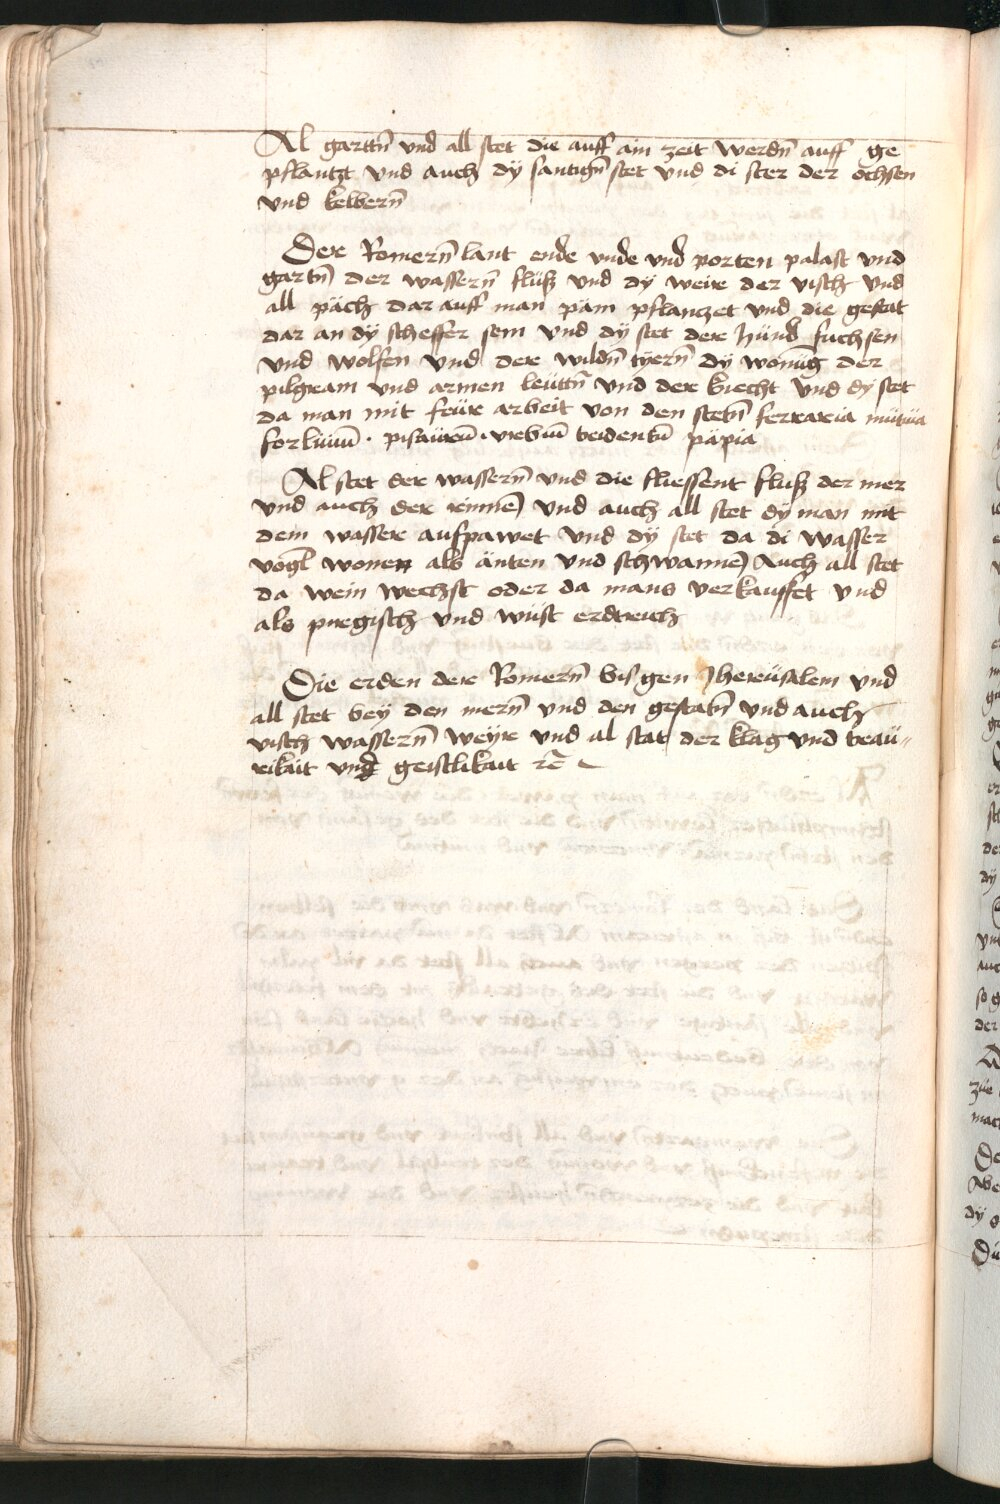 Al garttn̄ vnd all stet die auff ain zeit werdn̄ auff ge
pflantzt vnd auch dÿ santign̄ stet vnd di stet der ochsen
vnd kelbern̄
Dere Romern̄ lant ende vnde vnd porten palast vnd
gartn̄ der wassern̄ flüß vnd dÿ weire der visch vnd
all päch dar auff man päm pflanczet vnd die gestat
dar an dÿ scheffer sein vnd dÿ stet dere hünd fuchsen
vnd wolfen vnd dere wildn̄ tÿern̄ dÿ wonūg der
pilgram vnd armen leüttn̄ vnd der knecht vnd dy stet
da man mit feüre arbeit von den stetn̄ ferraria mütüa
forliuiū · pisaürū · vrbiū tridentū päpia
Al stet der wassern̄ vnd die fliessent fluß der mer
vnd auch der rinnen̄ vnd auch all stet dy man mit
dem wassere aufpawet vnd dÿ stet da di wasser
vogl wonen als änten vnd schwannen̄ Auch all stet
da wein wechst oder da mans verkauffet vnd
als piregisch vnd wüst erdtreich
Die erden dere Romern̄ bis gen Jherüsalem vnd
all stet bey den mern̄ vnd den gestatn̄ vnd auch
visch wassern̄ weÿre vnd al stat der klag vnd traü„
rikait vnd geistlikait ꝛc̄